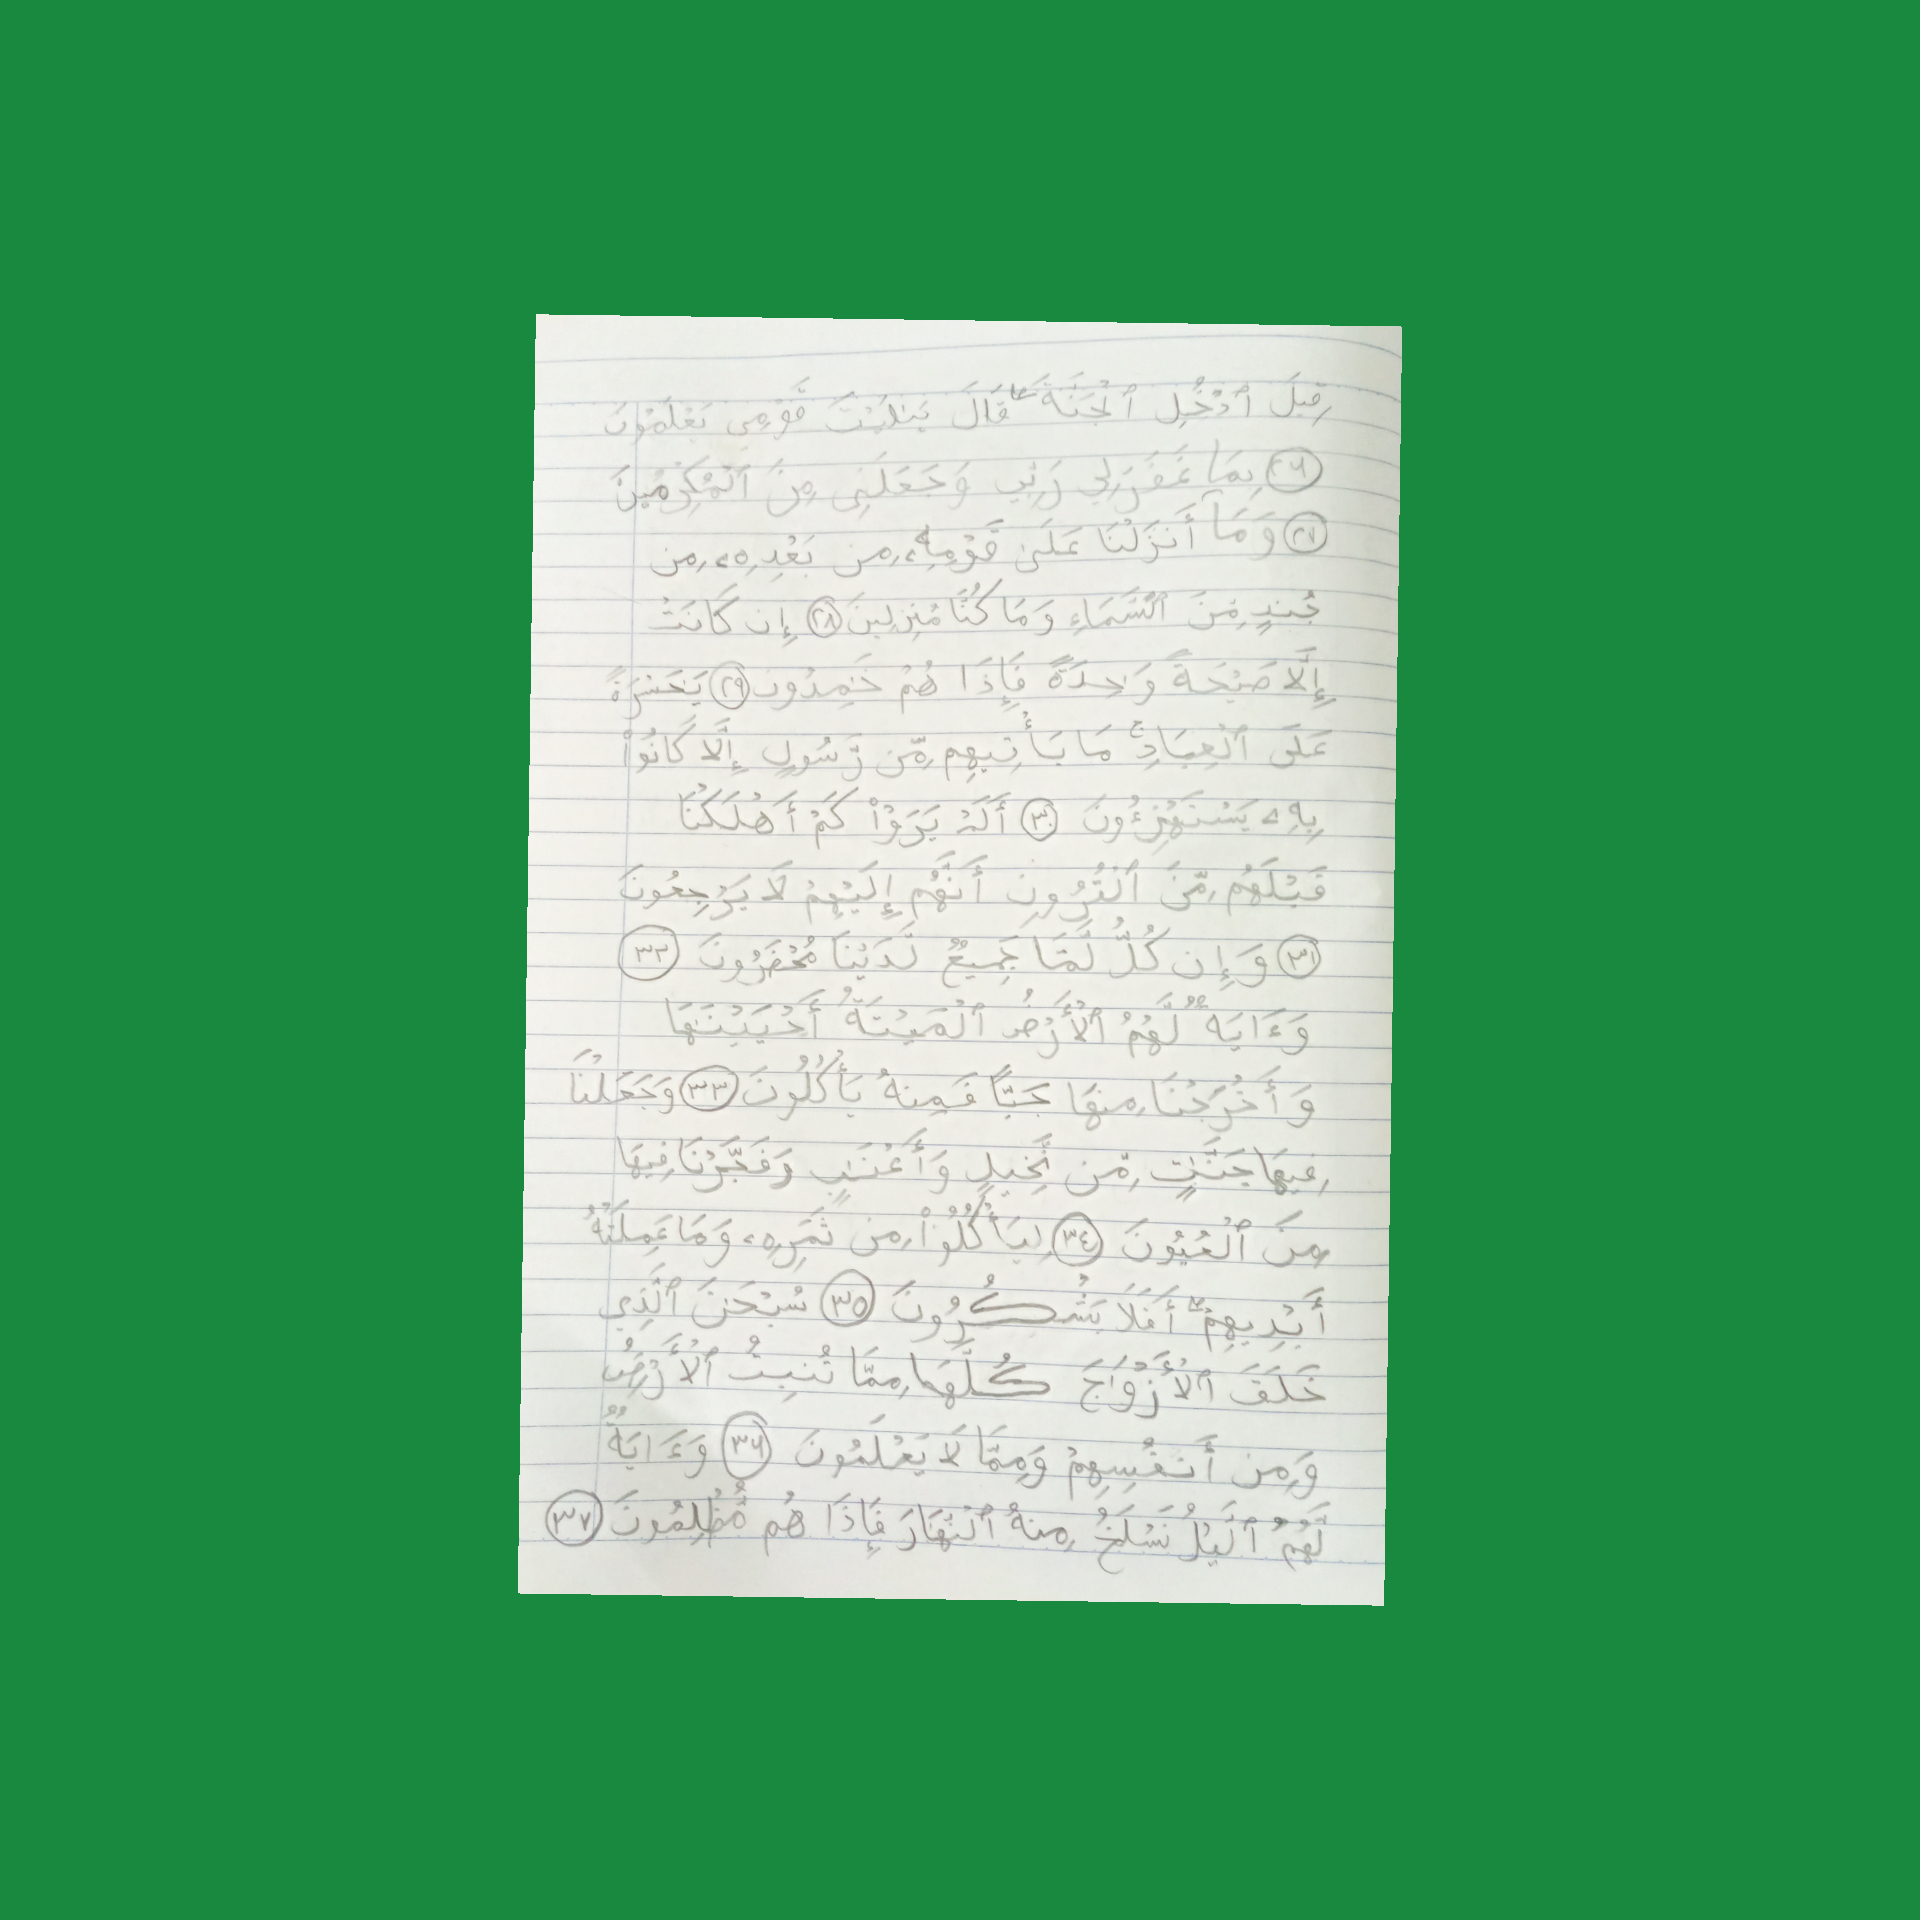 قِيلَ ٱدْخُلِ ٱلْجَنَّةَ ۖ قَالَ يَٰلَيْتَ قَوْمِى يَعْلَمُونَ
٢٦ بِمَا غَفَرَ لِي رَبِّي وَجَعَلَنِى مِنَ ٱلْمُكْرَمِينَ
٢٧ وَمَآ أَنزَلْنَا عَلَىٰ قَوْمِهِۦ مِن بَعْدِهِۦ مِن
جُندٍ مِّنَ ٱلسَّمَاءِ وَمَا كُنَّا مُنزِلِينَ ٢٨ إِن كَانَتْ
إِلَّا صَيْحَةً وَٰحِدَةً فَإِذَا هُمْ خَٰمِدُونَ ٢٩ يَٰحَسْرَةً
عَلَى ٱلْعِبَادِ ۚ مَا يَأْتِيهِم مِّن رَّسُولٍ إِلَّا كَانُوا۟
بِهِۦ يَسْتَهْزِءُونَ ٣٠ أَلَمْ يَرَوْا۟ كَمْ أَهْلَكْنَا
قَبْلَهُم مِّنَ ٱلْقُرُونِ أَنَّهُمْ إِلَيْهِمْ لَا يَرْجِعُونَ
٣١ وَإِن كُلٌّ لَّمَّا جَمِيعٌ لَّدَيْنَا مُحْضَرُونَ ٣٢
وَءَايَةٌ لَّهُمُ ٱلْأَرْضُ ٱلْمَيْتَةُ أَحْيَيْنَٰهَا
وَأَخْرَجْنَا مِنْهَا حَبًّا فَمِنْهُ يَأْكُلُونَ ٣٣ وَجَعَلْنَا
فِيهَا جَنَّٰتٍ مِّن نَّخِيلٍ وَأَعْنَٰبٍ وَفَجَّرْنَا فِيهَا
مِنَ ٱلْعُيُونِ ٣٤ لِيَأْكُلُوا۟ مِن ثَمَرِهِۦ وَمَا عَمِلَتْهُ
أَيْدِيهِمْ ۖ أَفَلَا يَشْكُرُونَ ٣٥ سُبْحَٰنَ ٱلَّذِي
خَلَقَ ٱلْأَزْوَٰجَ كُلَّهَا مِمَّا تُنۢبِتُ ٱلْأَرْضُ
وَمِنْ أَنفُسِهِمْ وَمِمَّا لَا يَعْلَمُونَ ٣٦ وَءَايَةٌ
لَّهُمُ ٱلَّيْلُ نَسْلَخُ مِنْهُ ٱلنَّهَارَ فَإِذَا هُم مُّظْلِمُونَ ٣٧